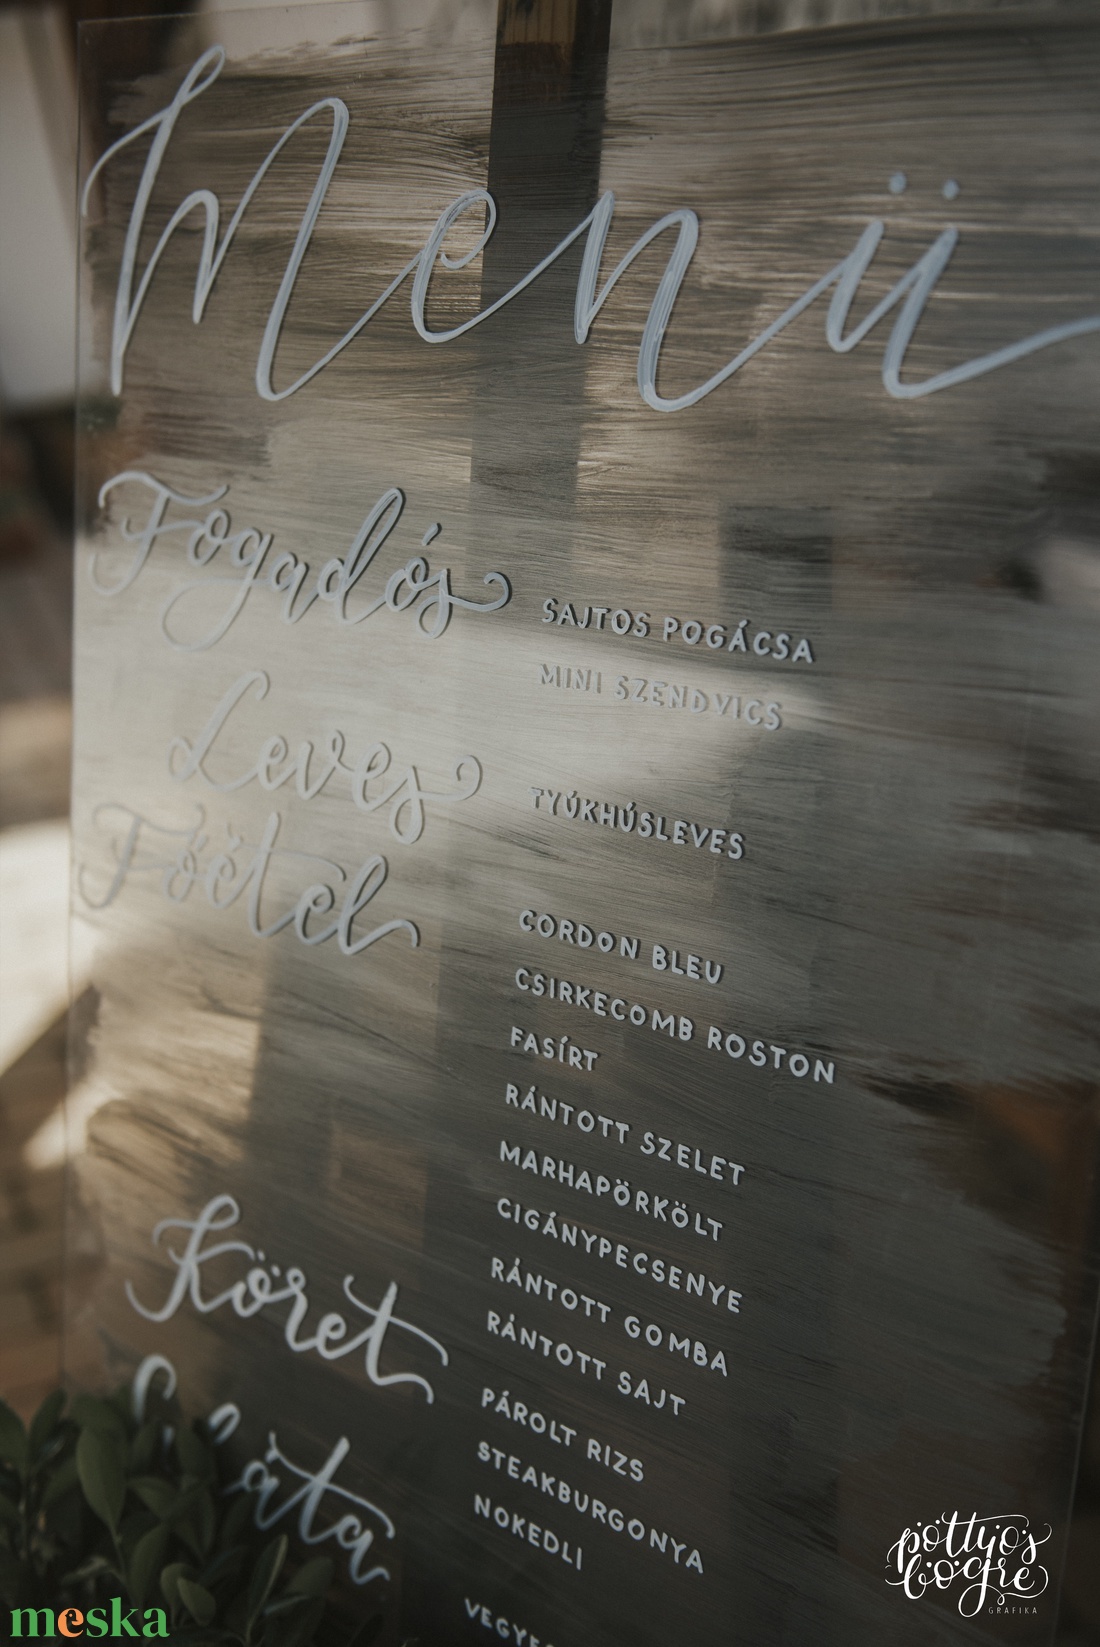 Menü
Fogadós
SAJTOS POGÁCSA
MINI SZENDVICS
Leves
TYÚKHÚSLEVES
Főétel
CORDON BLEU
CSIRKECOMB ROSTON
FASÍRT
RÁNTOTT SZELET
MARHAPÖRKÖLT
CIGÁNYPECSENYE
RÁNTOTT GOMBA
RÁNTOTT SAJT
Köret
PÁROLT RIZS
STEAKBURGONYA
NOKEDLI
pöttyös
bögre
GRAFIKA
meska